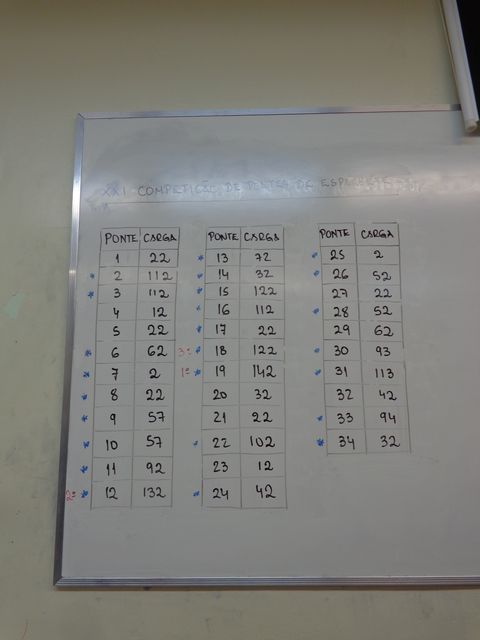 XXI COMPETIÇÃO DE PONTES DE ESPAGUETE
PONTE CARGA
1 22
* 2 112
* 3 112
4 12
5 22
* 6 62
* 7 2
* 8 22
* 9 57
* 10 57
* 11 92
2º * 12 132
PONTE CARGA
* 13 72
* 14 32
* 15 122
* 16 112
* 17 22
3º * 18 122
1º * 19 142
20 32
21 22
* 22 102
23 12
* 24 42
PONTE CARGA
* 25 2
* 26 52
27 22
* 28 52
29 62
* 30 93
* 31 113
32 42
* 33 94
* 34 32